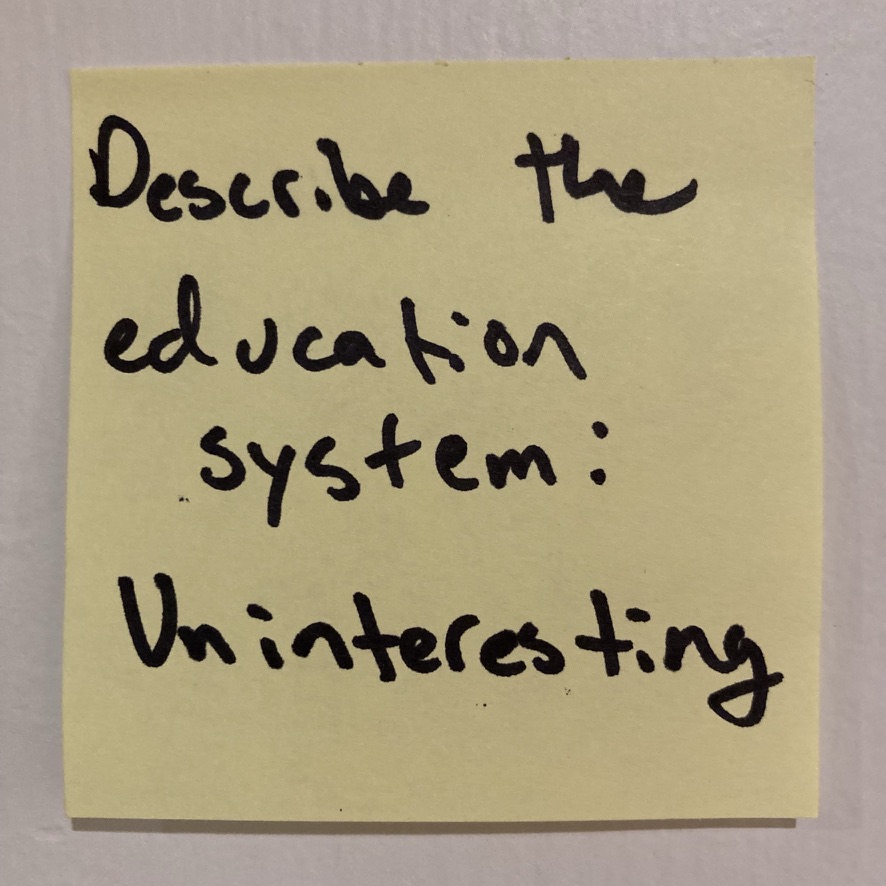 Describe the
education
system:
Uninteresting